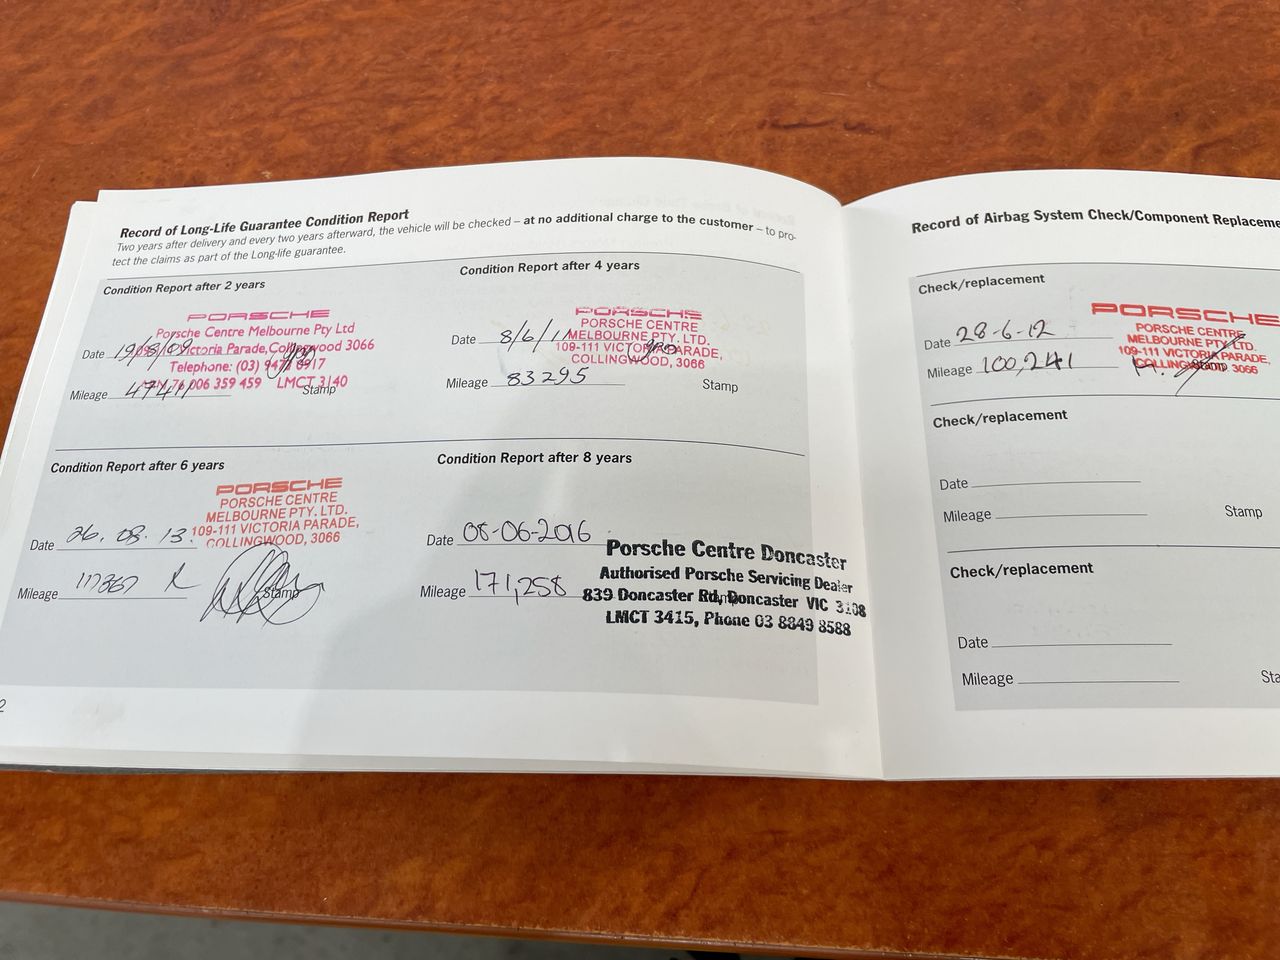 Record of Long-Life Guarantee Condition Report
Two years after delivery and every two years afterward, the vehicle will be checked – at no additional charge to the customer – to pro-
tect the claims as part of the Long-life guarantee.
Condition Report after 2 years
PORSCHE
Porsche Centre Melbourne Pty Ltd
Victoria Parade, Collingwood 3066
Telephone: (03)
006 359 459 LMCT 3140
Date 19/
Mileage 47411
Stamp
Condition Report after 4 years
PORSCHE
PORSCHE CENTRE
MELBOURNE PTY. LTD.
109-111 VICTORIA PARADE,
COLLINGWOOD, 3066
Date 8/6/11
Mileage 83295
Stamp
Condition Report after 6 years
PORSCHE
PORSCHE CENTRE
MELBOURNE PTY. LTD.
109-111 VICTORIA PARADE,
COLLINGWOOD, 3066
Date 26. 08. 13.
Mileage 117367
Stamp
Condition Report after 8 years
Date 08-06-2016
Mileage 171,258
Porsche Centre Doncaster
Authorised Porsche Servicing Dealer
839 Doncaster Rd, Doncaster VIC 3108
LMCT 3415, Phone 03 8849 8588
2
Record of Airbag System Check/Component Replaceme
Check/replacement
PORSCHE
PORSCHE CENTRE
MELBOURNE PTY. LTD.
109-111 VICTORIA PARADE,
COLLINGWOOD 3066
Date 28-6-12
Mileage 100,241
Check/replacement
Date
Mileage
Stamp
Check/replacement
Date
Mileage
Sta